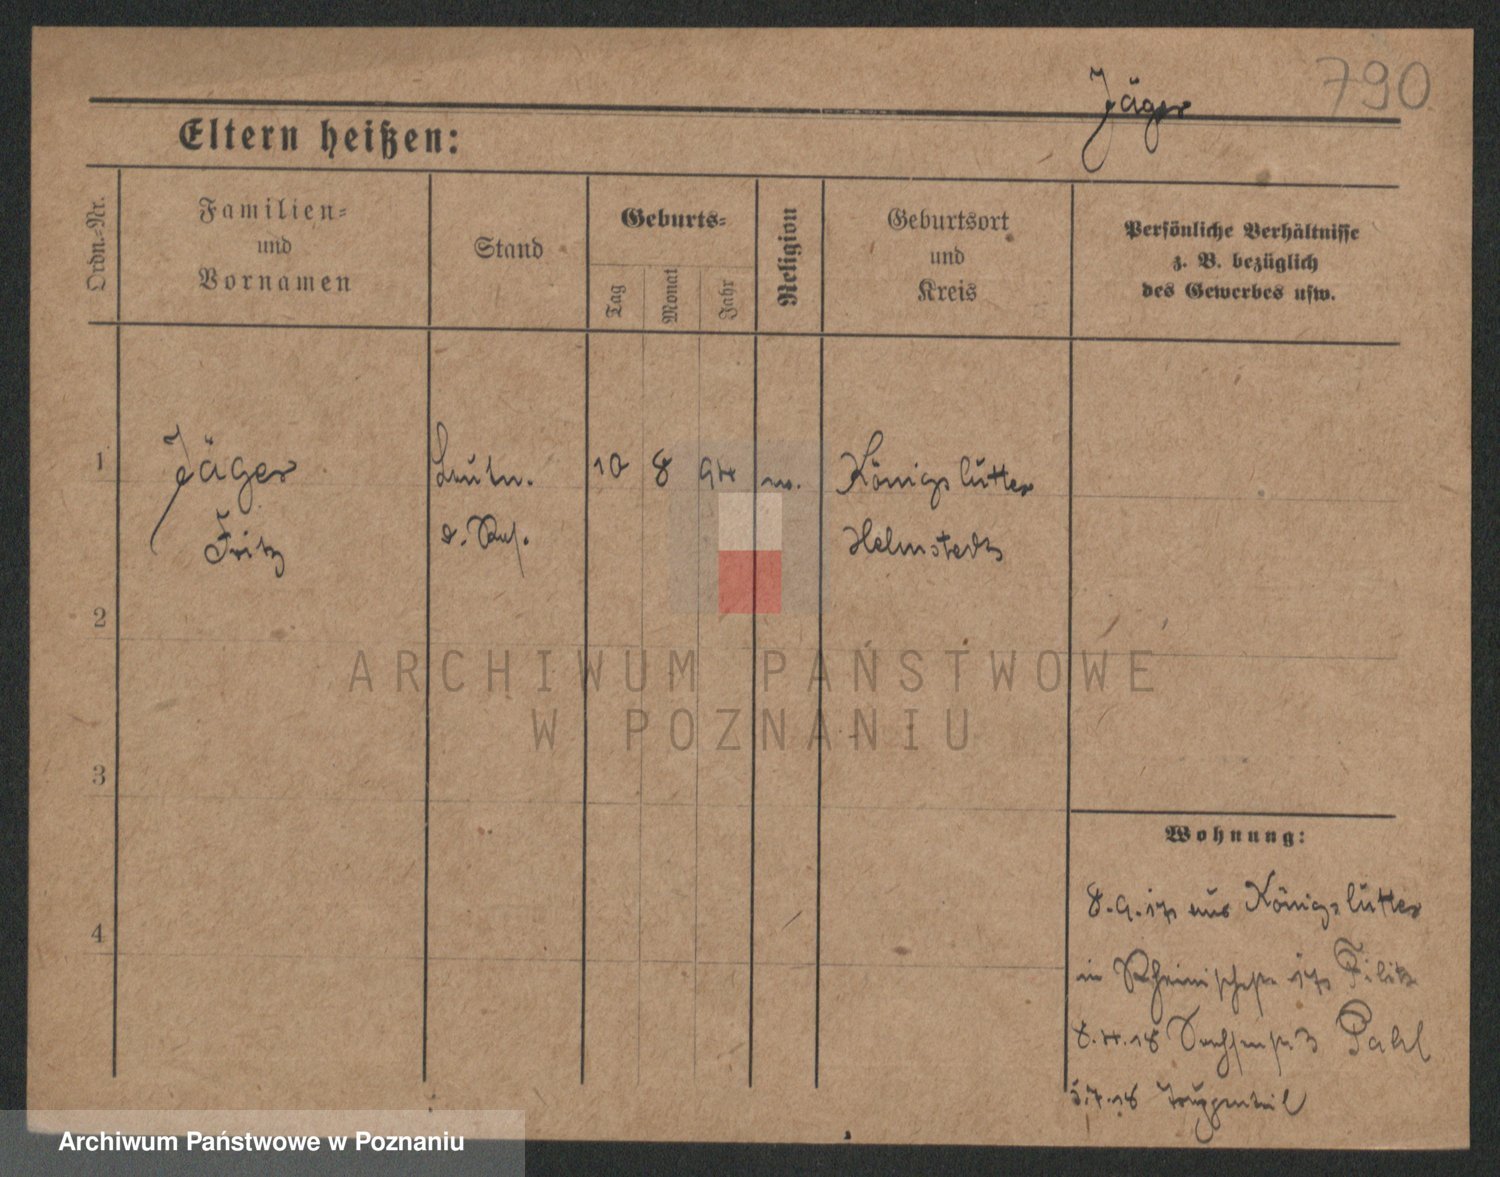 790
Jäger
Eltern heißen:
Ordn.-Nr.
Familien-
und
Vornamen
Stand
Geburts-
Tag
Monat
Jahr
Religion
Geburtsort
und
Kreis
Persönliche Verhältnisse
z. B. bezüglich
des Gewerbes usw.
1 Jäger Leutn. 10 8 94 Königslutter
Fritz d. Res. Helmstedt
2
3
4
Wohnung:
8.9.17 aus Königslutter
in Rheinischestr 17
8.4.18 3 Pahl
5.7.18 Truppenteil
ARCHIWUM PAŃSTWOWE
W POZNANIU
Archiwum Państwowe w Poznaniu